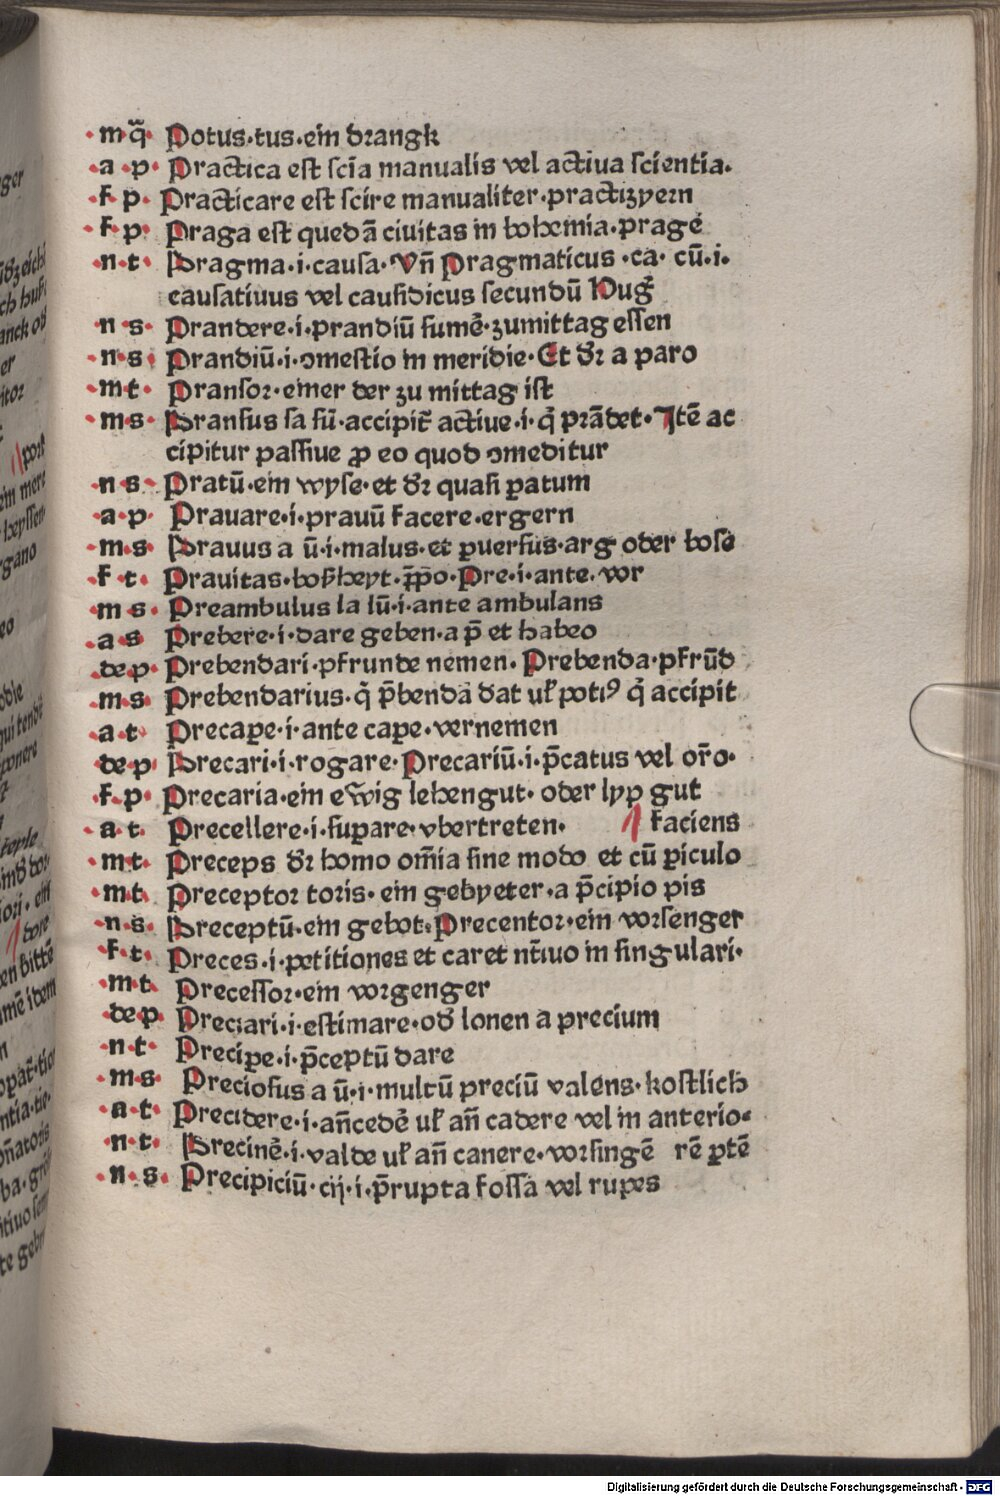 ·m·q̃· Potus·tus·ein drangk
·a·p· Practica est scīa manualis vel actiua scientia·
·f·p· Practicare est scire manualiter·practizyern
·f·p· Praga est quedā ciuitas in bohemia·prage
·n·t· Pragma·i·causa·Vn̄ Pragmaticus·ca·cū·i·
causatiuus vel causidicus secundū Hug̃
·n·s· Prandere·i·prandiū sumē·zumittag essen
·n·s· Prandiū·i·ↄmestio in meridie·Et dr̄ a paro
·m·t· Pransor·einer der zu mittag ist
·m·s· Pransus sa sū·accipit̄ actiue·i·q̇ prādet·Itē ac
cipitur passiue ꝓ eo quod ↄmeditur
·n·s· Pratū·ein wyse·et dr̄ quasi ꝑatum
·a·p· Prauare·i·prauū facere·ergern
·m·s· Prauus a ū·i·malus·et ꝑuersus·arg oder bose
·f·t· Prauitas·boßheyt·p̄ꝑo·Pre·i·ante·vor
·m·s· Preambulus la lū·i·ante ambulans
·a·s· Prebere·i·dare geben·a p̄ et habeo
·de·p· Prebendari·pfrunde nemen·Prebenda·pfrūd
·m·s· Prebendarius·q̇ p̄bendā dat uł potiꝰ q̇ accipit
·a·t· Precape·i·ante cape·vernemen
·de·p· Precari·i·rogare·Precariū·i·p̄catus vel or̄o·
·f·p· Precaria·ein ewig lehengut·oder lyp gut
·a·t· Precellere·i·suꝑare·vbertreten· ¶ faciens
·m·t· Preceps dr̄ homo om̄ia sine modo et cū ꝑiculo
·m·t· Preceptor toris·ein gebyeter·a p̄cipio pis
·n·s· Preceptū·ein gebot·Precentor·ein vorsenger
·f·t· Preces·i·petitiones et caret nt̄iuo in singulari·
·m·t· Precessor·ein vorgenger
·de·p· Preciari·i·estimare·od̄ lonen a precium
·n·t· Precipe·i·p̄ceptū dare
·m·s· Preciosus a ū·i·multū preciū valens·kostlich
·a·t· Precidere·i·an̄cedē uł an̄ cadere vel in anterio=
·n·t· Precinē·i·valde uł an̄ canere·vorsingē rē ꝑtē
·n·s· Precipiciū·cij·i·p̄rupta fossa vel rupes
Digitalisierung gefördert durch die Deutsche Forschungsgemeinschaft · DFG